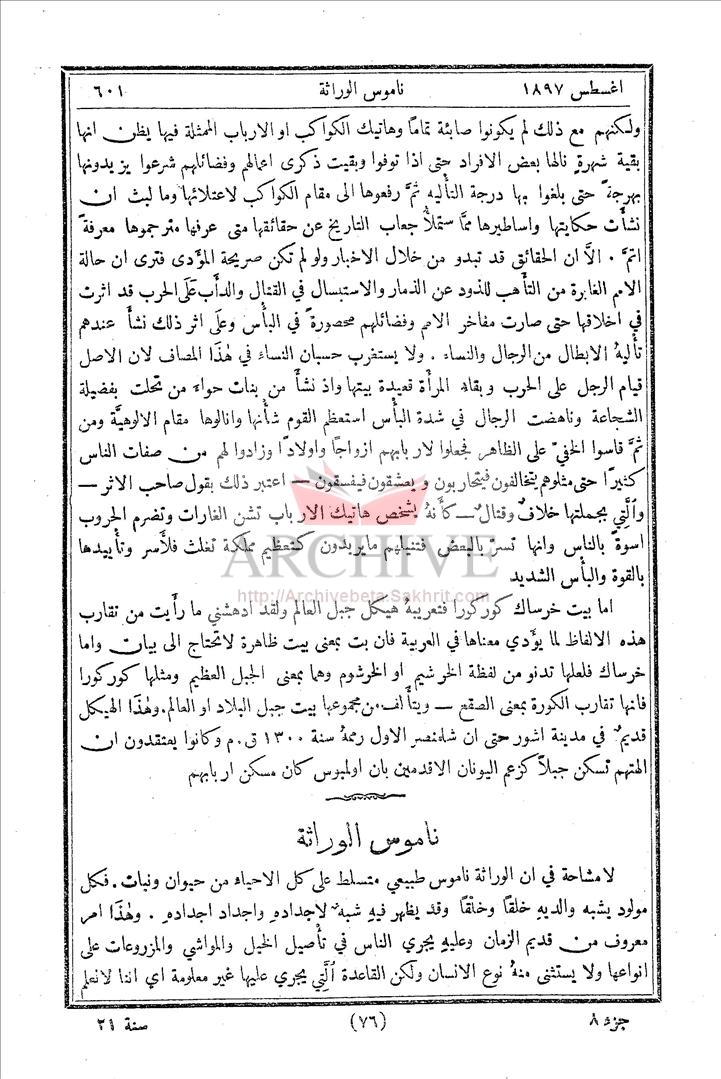 اغسطس ١٨٩٧ ناموس الوراثة ٦٠١
ولكنهم مع ذلك لم يكونوا صابئة تمامًا وهاتيك الكواكب او الارباب الممثلة فيها يظن انها
بقية شهرةٍ نالها بعض الافراد حتى اذا توفوا وبقيت ذكرى اعمالهم وفضائلهم شرعوا يزيدونها
بهرجةً حتى بلغوا بها درجة التأليه ثمَّ رفعوها الى مقام الكواكب لاعتلائها وما لبث ان
نشأَت حكايتها واساطيرها ممَّا ستملأُ جعاب التاريخ عن حقائقها متى عرفها مترجموها معرفةً
اتمَّ . الاَّ ان الحقائق قد تبدو من خلال الاخبار ولو لم تكن صريحة المؤدى فترى ان حالة
الامم الغابرة من التأهب للذود عن الذمار والاستبسال في القتال والدأب على الحرب قد اثرت
في اخلاقها حتى صارت مفاخر الامم وفضائلهم محصورةً في البأس وعلى اثر ذلك نشأَ عندهم
تأليهُ الابطال من الرجال والنساء . ولا يستغرب حسبان النساء في هٰذا المصاف لان الاصل
قيام الرجل على الحرب وبقاء المرأة قعيدة بيتها واذ نشأ من بنات حواء من تحلت بفضيلة
الشجاعة وناهضت الرجال في شدة البأس استعظم القوم شأنها وانالوها مقام الالوهيَّة ومن
ثمَّ قاسوا الخفيَّ على الظاهر فجعلوا لاربابهم ازواجًا واولادًا وزادوا لهم من صفات الناس
كثيرًا حتى مثلوهم يتخالفون فيتحاربون ويعشقون فيفسقون — اعتبر ذلك بقول صاحب الاثر —
والَّتي بجملتها خلافٌ وقتالٌ — كأَنهُ يشخص هاتيك الارباب تشن الغارات وتضرم الحروب
اسوةً بالناس وانها تسرّ بالبعض فتنيلهم ما يريدون كتعظيم مملكة تغلث فلأسر وتأييدها
بالقوة والبأس الشديد
اما بيت خرساك كوركورا فتعريبهُ هيكل جبل العالم ولقد ادهشني ما رأيت من تقارب
هذه الالفاظ لما يؤدي معناها في العربية فان بت بمعنى بيت ظاهرة لا تحتاج الى بيان واما
خرساك فلعلها تدنو من لفظة الخرشيم او الخرشوم وهما بمعنى الجبل العظيم ومثلها كوركورا
فانها تقارب الكورة بمعنى الصقع — ويتأَلف من مجموعها بيت جبل البلاد او العالم. وهٰذا الهيكل
قديمٌ في مدينة اشور حتى ان شلمنصر الاول رممهُ سنة ١٣٠٠ ق.م وكانوا يعتقدون ان
الهتهم تسكن جبلاً كزعم اليونان الاقدمين بان اولمبوس كان مسكن اربابهم
ناموس الوراثة
لا مشاحة في ان الوراثة ناموس طبيعي متسلط على كل الاحياء من حيوان ونبات. فكل
مولود يشبه والديهِ خلقًا وخلْقًا وقد يظهر فيهِ شبهٌ لاجدادهِ واجداد اجدادهِ . وهٰذا امر
معروف من قديم الزمان وعليهِ يجري الناس في تأصيل الخيل والمواشي والمزروعات على
انواعها ولا يستثنى منهُ نوع الانسان ولكن القاعدة الَّتي يجري عليها غير معلومة اي اننا لا نعلم
جزء ٨ (٧٦) سنة ٢١
ARCHIVE
http://Archivebeta.Sakhrit.com